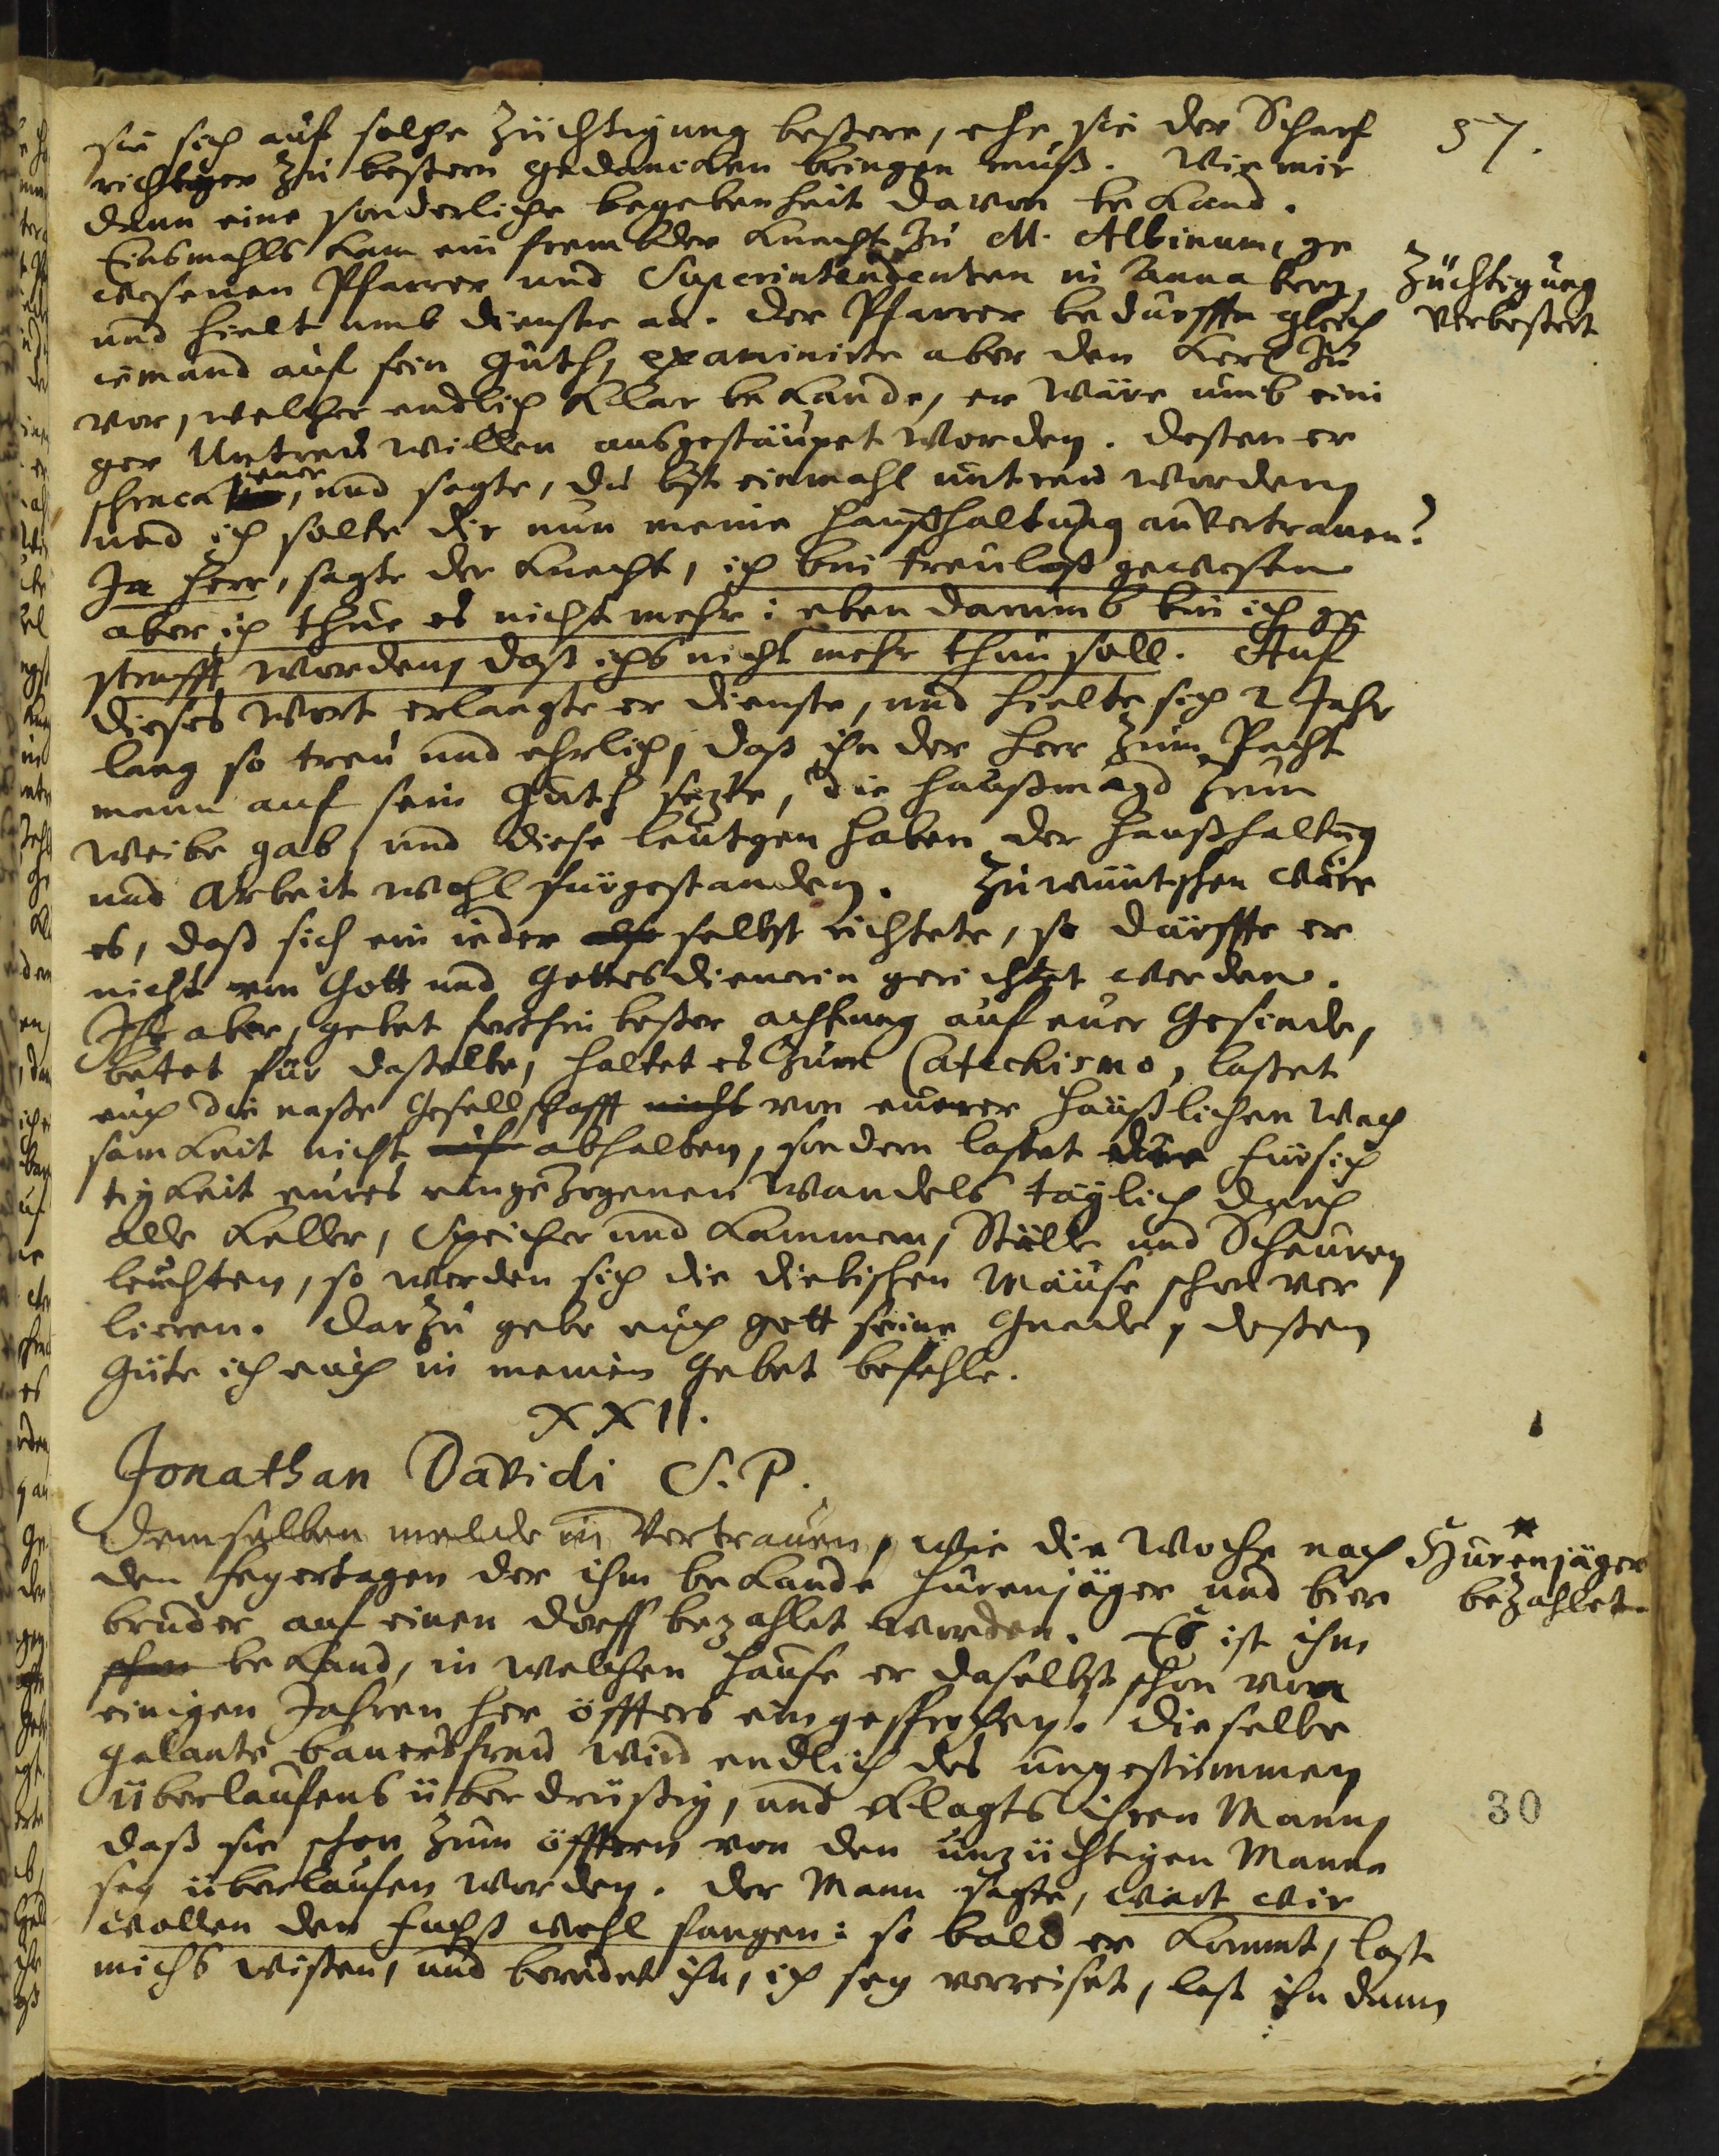 57.
sie sich auf solche Züchtigung beßere, ehe sie der Scharf
richter zu beßern gedancken bringen muß. Wie mir
dann eine sonderliche begebenheit davon bekand.
Einsmahls kam ein frembder Knecht zu M. Albinum, ge
wesenen Pfarrer und Superintendenten in Annaberg,
und hielt umb dienste an. Der Pfarrer bedurffte gleich
iemand auf sein Guth, examinirte aber den Kerl zu
vor, welcher endlich klar bekande, er wäre umb eini
ger Untreu willen ausgestäupet worden. Deßen er
schrack iener, und sagte, du bist einmahl untreu worden
und ich solte dir nun meine Haußhaltung anvertrauen?
Ja Herr, sagte der Knecht, ich bin treuloß gewesen
aber ich thue es nicht mehr: eben darumb bin ich ge
strafft worden, daß ichs nicht mehr thun soll. Auf
dieses Wort erlangte er dienste, und hielte sich 2 Jahr
lang so treu und ehrlich, daß ihn der Herr zum Pacht
mann auf sein Guth sezte, die Haußmagd zum
Weibe gab, und diese leutgen haben der Haußhaltung
und Arbeit wohl fürgestanden. Zuwüntschen wäre
es, daß sich ein ieder also selbst richtete, so dürffte er
nicht von Gott und Gottesdienerin gerichtet werden.
Ihr aber, gebet forthin beßer achtung auf euer Gesinde,
betet für daßelbe, haltet es zum Catechismo, laßet
euch die naße Gesellschafft nicht von euerer häußlichen Wach
samkeit nicht abhalten, sondern laßet die fürsich
tigkeit eures eingezogenen Wandels täglich durch
alle Keller, Speicher und Kammern, Ställe und Scheuren
leuchten, so werden sich die diebischen Mäuse schon ver
lieren. Darzu gebe euch Gott seine Gnade, deßen
Güte ich euch in meinem Gebet befehle.
XXII.
Jonathan Davidi S. P.
Demselben melde in Vertrauen, wie die Woche nach
den Feyertagen der ihm bekande Hurenjäger und bier
bruder auf einen dorff bezahlet worden. Es ist ihm
schon bekand, in welchen Hause er daselbst schon vor
einigen Jahren her öffters eingesprochen. Dieselbe
galante bauersfrau wird endlich des ungestümmen
überlaufens überdrüßig, und klagts ihren Mann,
daß sie schon zum öfftern von den unzüchtigen Manne
sey überlaufen worden. Der Mann sagte, wart wir
wollen den Fuchß wohl fangen: so bald er kommt, laß
michs wißen, und beredet ihn, ich sey verreiset, laß ihn dann
Züchtigung
verbeßert
Hurenjäger
bezahlet
30